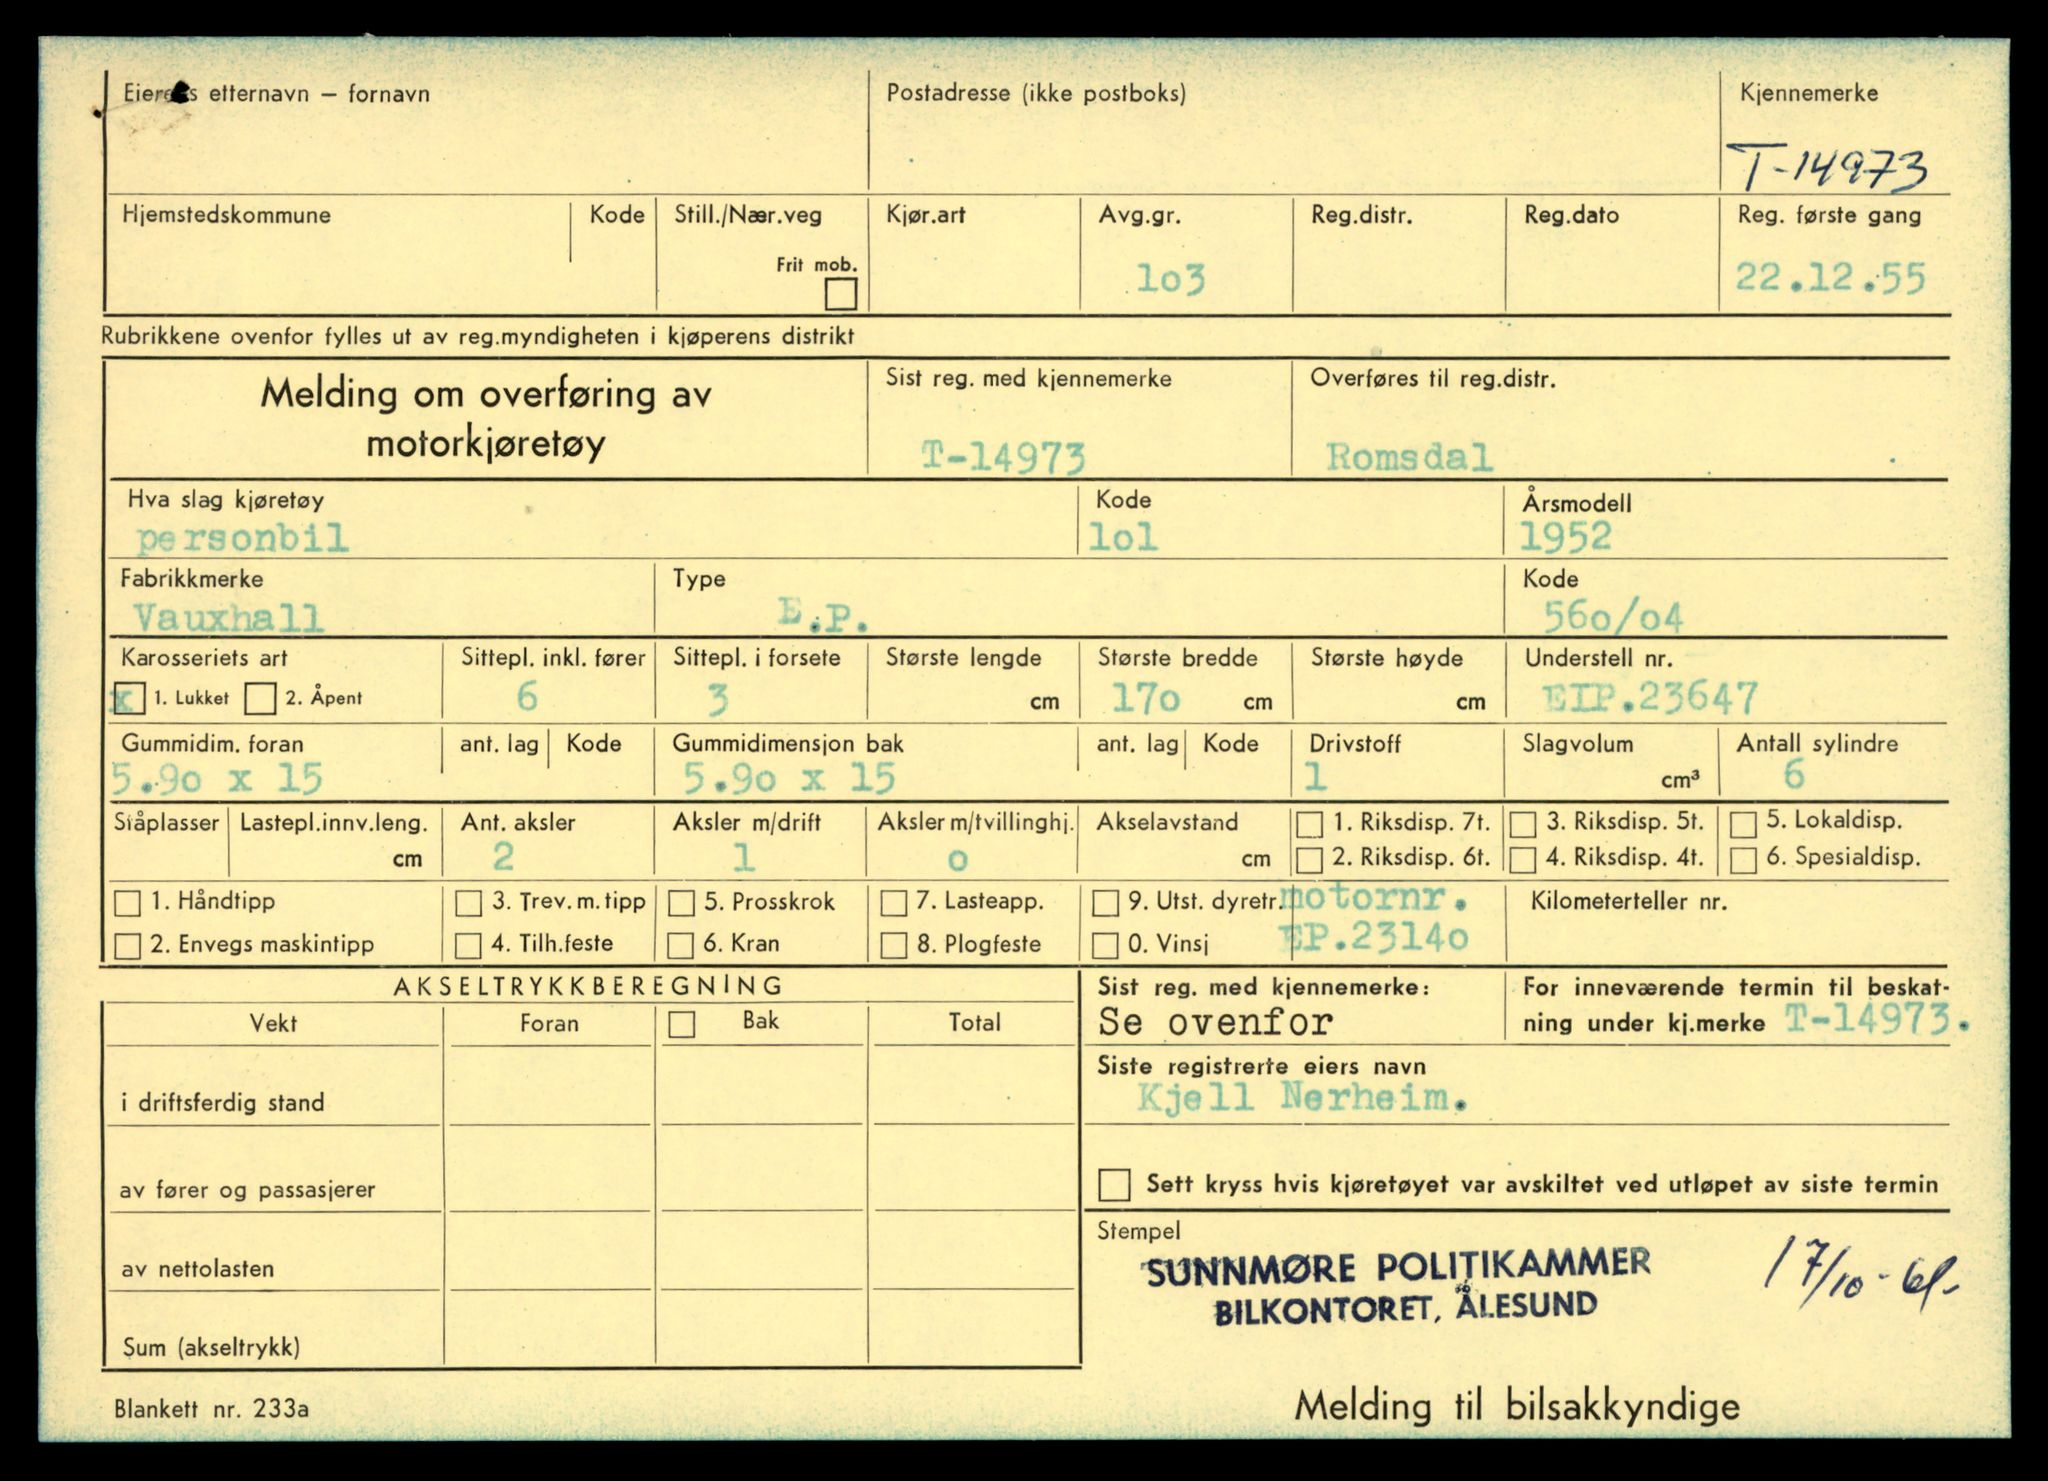 Eierens etternavn – fornavn
Postadresse (ikke postboks)
Kjennemerke
T-14973
Hjemstedskommune
Kode
Still./Nær.veg
Frit mob.
Kjør.art
Avg.gr.
lo3
Reg.distr.
Reg.dato
Reg. første gang
22.12.55
Rubrikkene ovenfor fylles ut av reg.myndigheten i kjøperens distrikt
Melding om overføring av
motorkjøretøy
Sist reg. med kjennemerke
T-14973
Overføres til reg.distr.
Romsdal
Hva slag kjøretøy
personbil
Kode
lol
Årsmodell
1952
Fabrikkmerke
Vauxhall
Type
E.P.
Kode
56o/o4
Karosseriets art
x 1. Lukket 2. Åpent
Sittepl. inkl. fører
6
Sittepl. i forsete
3
Største lengde
cm
Største bredde
17o cm
Største høyde
cm
Understell nr.
EIP.23647
Gummidim. foran
5.9o x 15
ant. lag
Kode
Gummidimensjon bak
5.9o x 15
ant. lag
Kode
Drivstoff
1
Slagvolum
cm³
Antall sylindre
6
Ståplasser
Lastepl.innv.leng.
cm
Ant. aksler
2
Aksler m/drift
1
Aksler m/tvillinghj.
o
Akselavstand
cm
1. Riksdisp. 7t.
2. Riksdisp. 6t.
3. Riksdisp. 5t.
4. Riksdisp. 4t.
5. Lokaldisp.
6. Spesialdisp.
1. Håndtipp
2. Envegs maskintipp
3. Trev. m. tipp
4. Tilh.feste
5. Prosskrok
6. Kran
7. Lasteapp.
8. Plogfeste
9. Utst. dyretr.
0. Vinsj
motornr.
EP.2314o
Kilometerteller nr.
AKSELTRYKKBEREGNING
Vekt
Foran
Bak
Total
i driftsferdig stand
av fører og passasjerer
av nettolasten
Sum (akseltrykk)
Sist reg. med kjennemerke:
Se ovenfor
For inneværende termin til beskat-
ning under kj.merke T-14973.
Siste registrerte eiers navn
Kjell Nerheim.
Sett kryss hvis kjøretøyet var avskiltet ved utløpet av siste termin
Stempel
SUNNMØRE POLITIKAMMER
BILKONTORET, ÅLESUND
17/10-61.
Blankett nr. 233a
Melding til bilsakkyndige